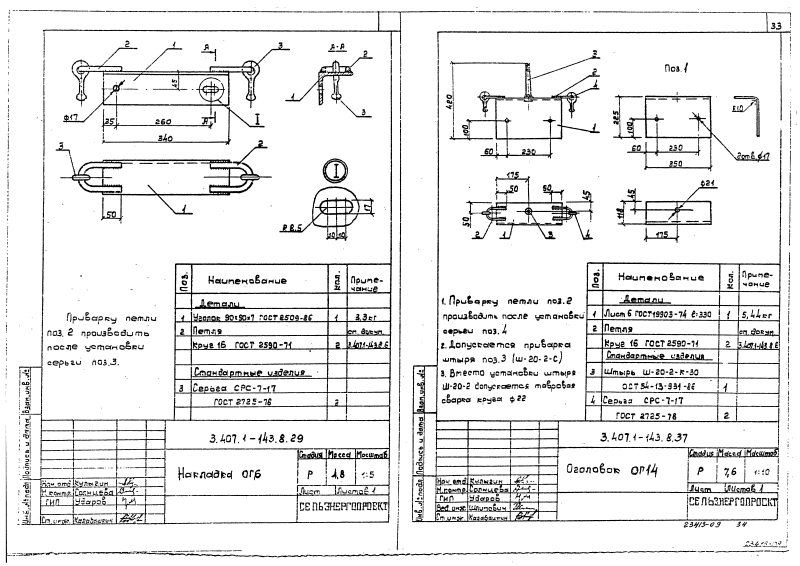 33
2
1
А
3
А-А
2
1
3
45
ф17
35
260
А
I
340
3
2
50
1
I
R 8.5
10
10
17
Приварку петли
поз. 2 производить
после установки
серьги поз. 3.
Поз. Наименование Кол. Приме-чание
Детали
1 Уголок 90×90×7 ГОСТ 8509-86 1 3,3 кг
2 Петля
Круг 16 ГОСТ 2590-71 2 3.407.1-143.8.6
Стандартные изделия
3 Серьга СРС-7-17
ГОСТ 2725-78 2
3.407.1-143.8.29
Накладка ОГ6
Стадия Масса Масштаб
Р 4,8 1:5
Лист Листов 1
СЕЛЬЭНЕРГОПРОЕКТ
Нач. отд. Кулыгин
Н.контр. Солнцева
ГИП Ударов
Ст. инж. Казабалгин
Инв. № подл. Подпись и дата Взам. инв. №
3
2
4
420
100
1
60
230
Поз. 1
225
100
60
230
350
R10
2 отв. ф17
175
50
50
45
50
2
1
3
4
ф21
45
118
175
1. Приварку петли поз. 2
производить после установки
серьги поз. 4
2. Допускается приварка
штыря поз. 3 (Ш-20-2-С)
3. Вместо установки штыря
Ш-20-2 допускается тавровая
сварка круга ф22
Поз. Наименование Кол. Приме-чание
Детали
1 Лист 6 ГОСТ 19903-74 ℓ=330 1 5,44 кг
2 Петля
Круг 16 ГОСТ 2590-71 2 3.407.1-143.8.6
Стандартные изделия
3 Штырь Ш-20-2-К-30
ОСТ 34-13-931-86 1
4 Серьга СРС-7-17
ГОСТ 2725-78 2
3.407.1-143.8.37
Оголовок ОГ14
Стадия Масса Масштаб
Р 7,6 1:10
Лист Листов 1
СЕЛЬЭНЕРГОПРОЕКТ
Нач. отд. Кулыгин
Н.контр. Солнцева
ГИП Ударов
Вед. инж. Шпитович
Ст. инж. Казабалгин
Инв. № подл. Подпись и дата Взам. инв. №
23413-09 34